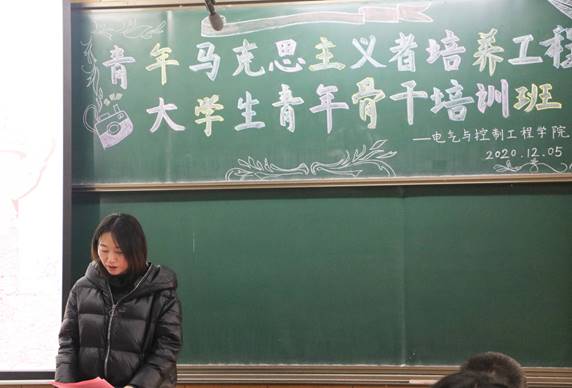 青年马克思主义者培养工程
大学生青年骨干培训班
——电气与控制工程学院
2020.12.05